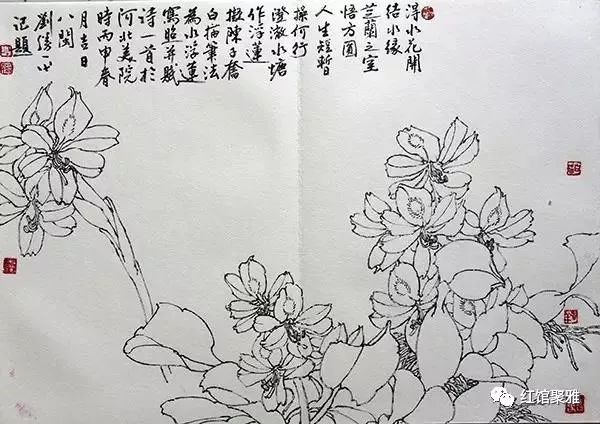 得水花開
结水缘
芝蘭之室
悟方圓
人生短暫
操何行
澄澈水塘
作浮蓮
擬陳子奮
白描筆法
為水浮蓮
寫照并賦
诗一首於
河北美院
時丙申春
月吉日
八閩
劉勝一
记題
红馆聚雅